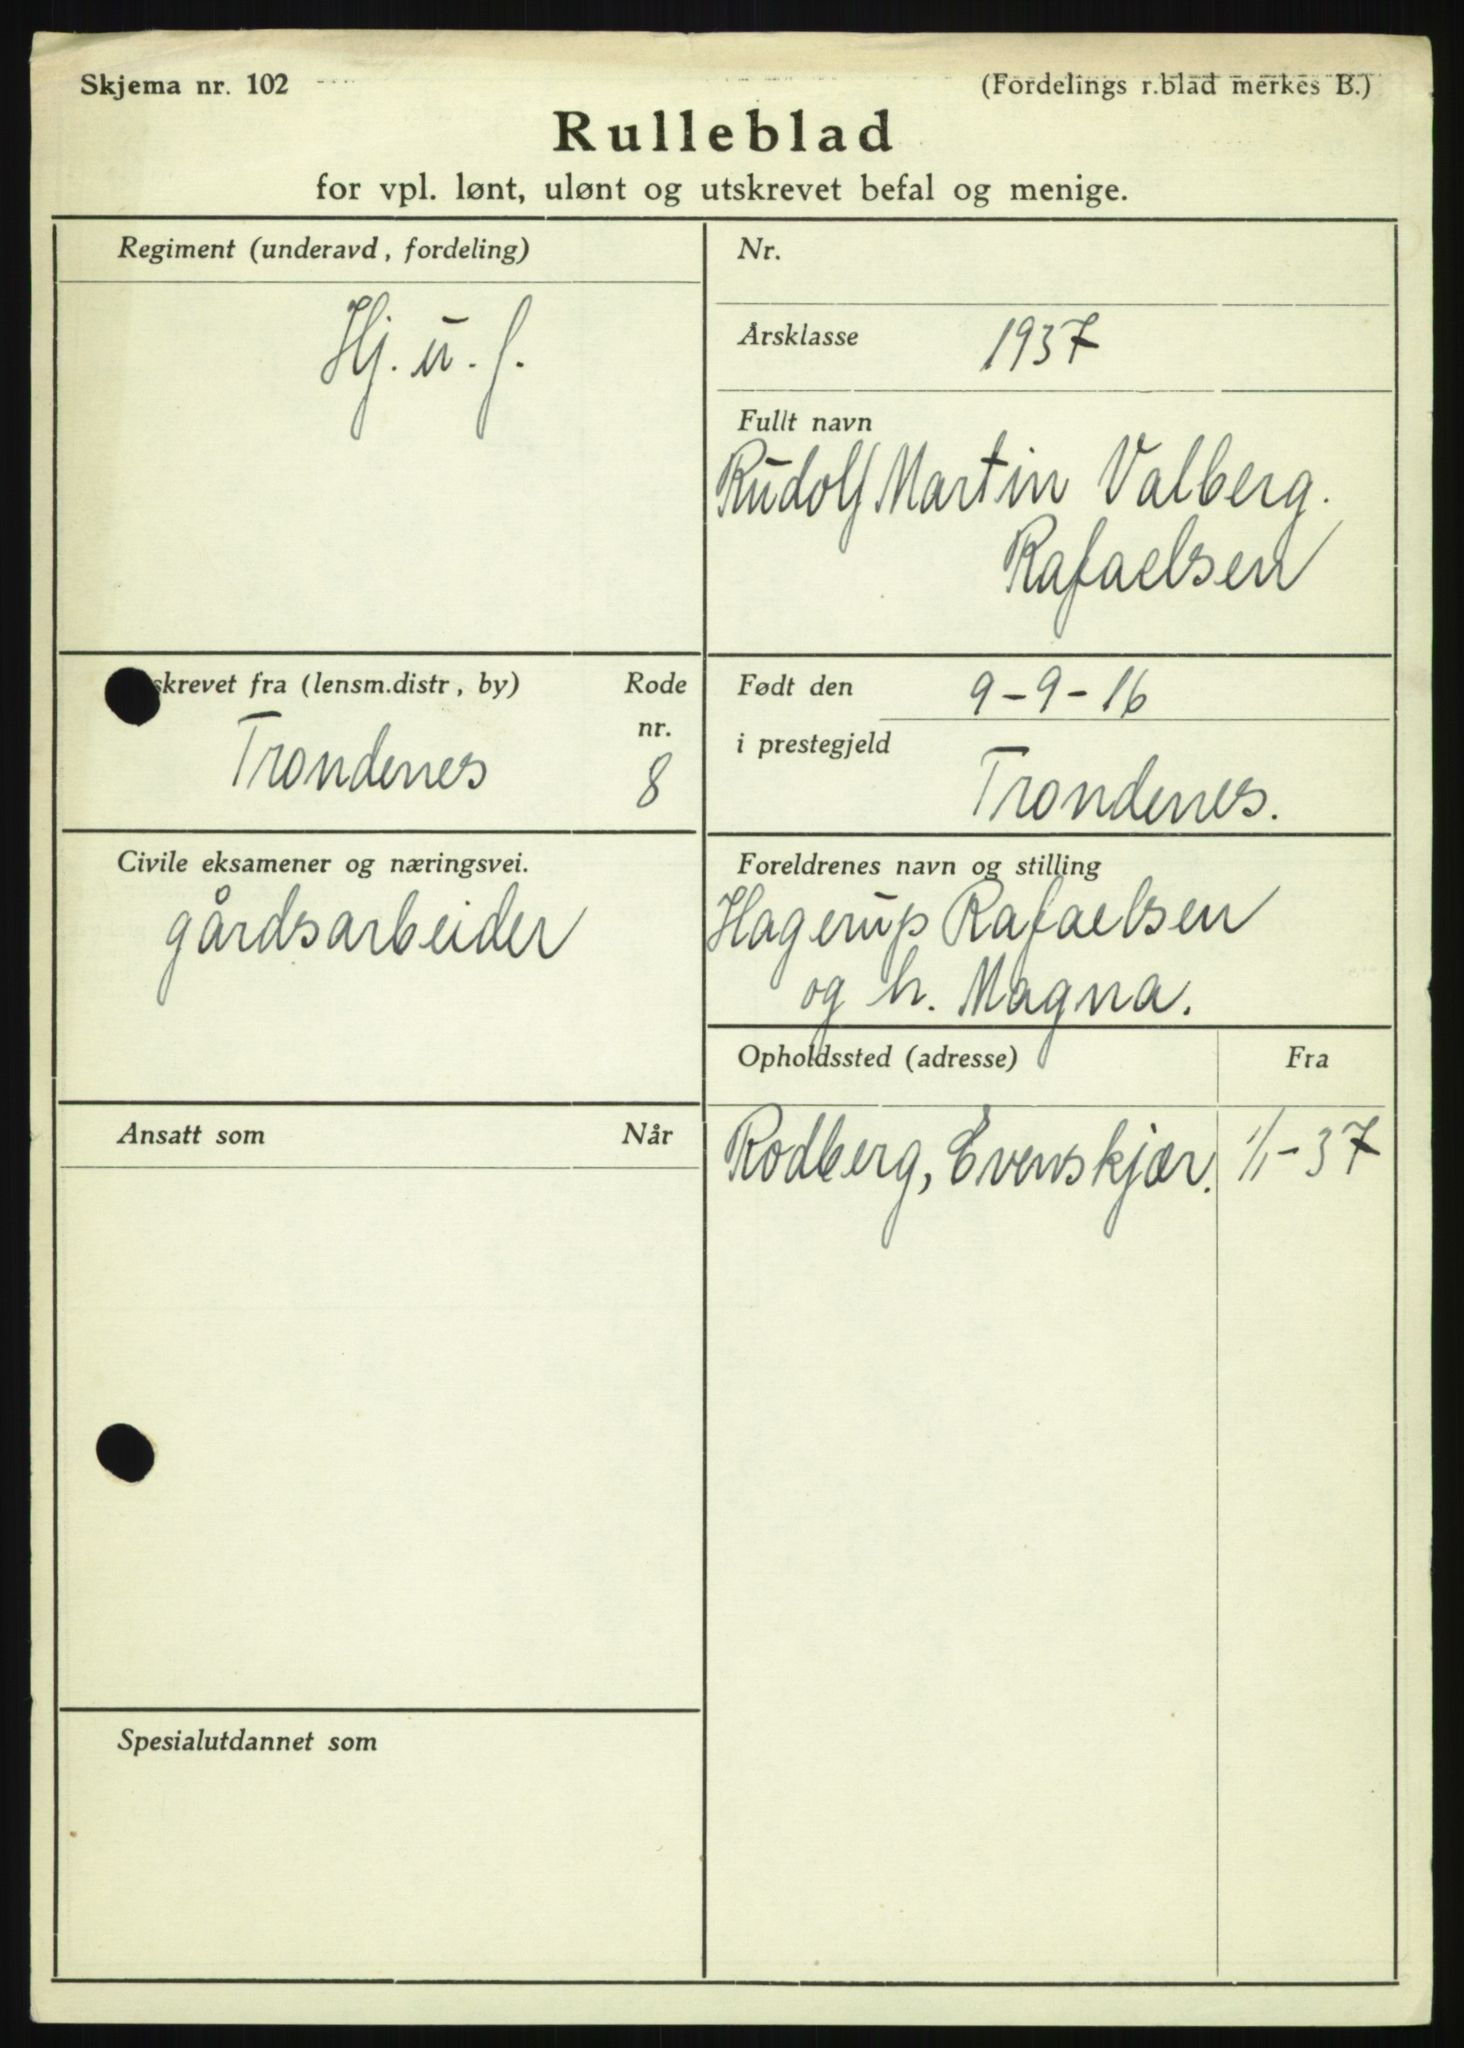 Skjema nr. 102
(Fordelings r.blad merkes B.)
Rulleblad
for vpl. lønt, ulønt og utskrevet befal og menige.
Regiment (underavd, fordeling)
Hj. u. f.
Nr.
Årsklasse 1937
Fullt navn
Rudolf Martin Valberg.
Rafaelsen
skrevet fra (lensm.distr, by)
Rode
nr.
Trondenes
8
Født den 9-9-16
i prestegjeld
Trondenes.
Civile eksamener og næringsvei.
gårdsarbeider
Foreldrenes navn og stilling
Hagerup Rafaelsen
og h. Magna.
Opholdssted (adresse)
Fra
Rodberg, Evenskjær. 1/1-37
Ansatt som
Når
Spesialutdannet som